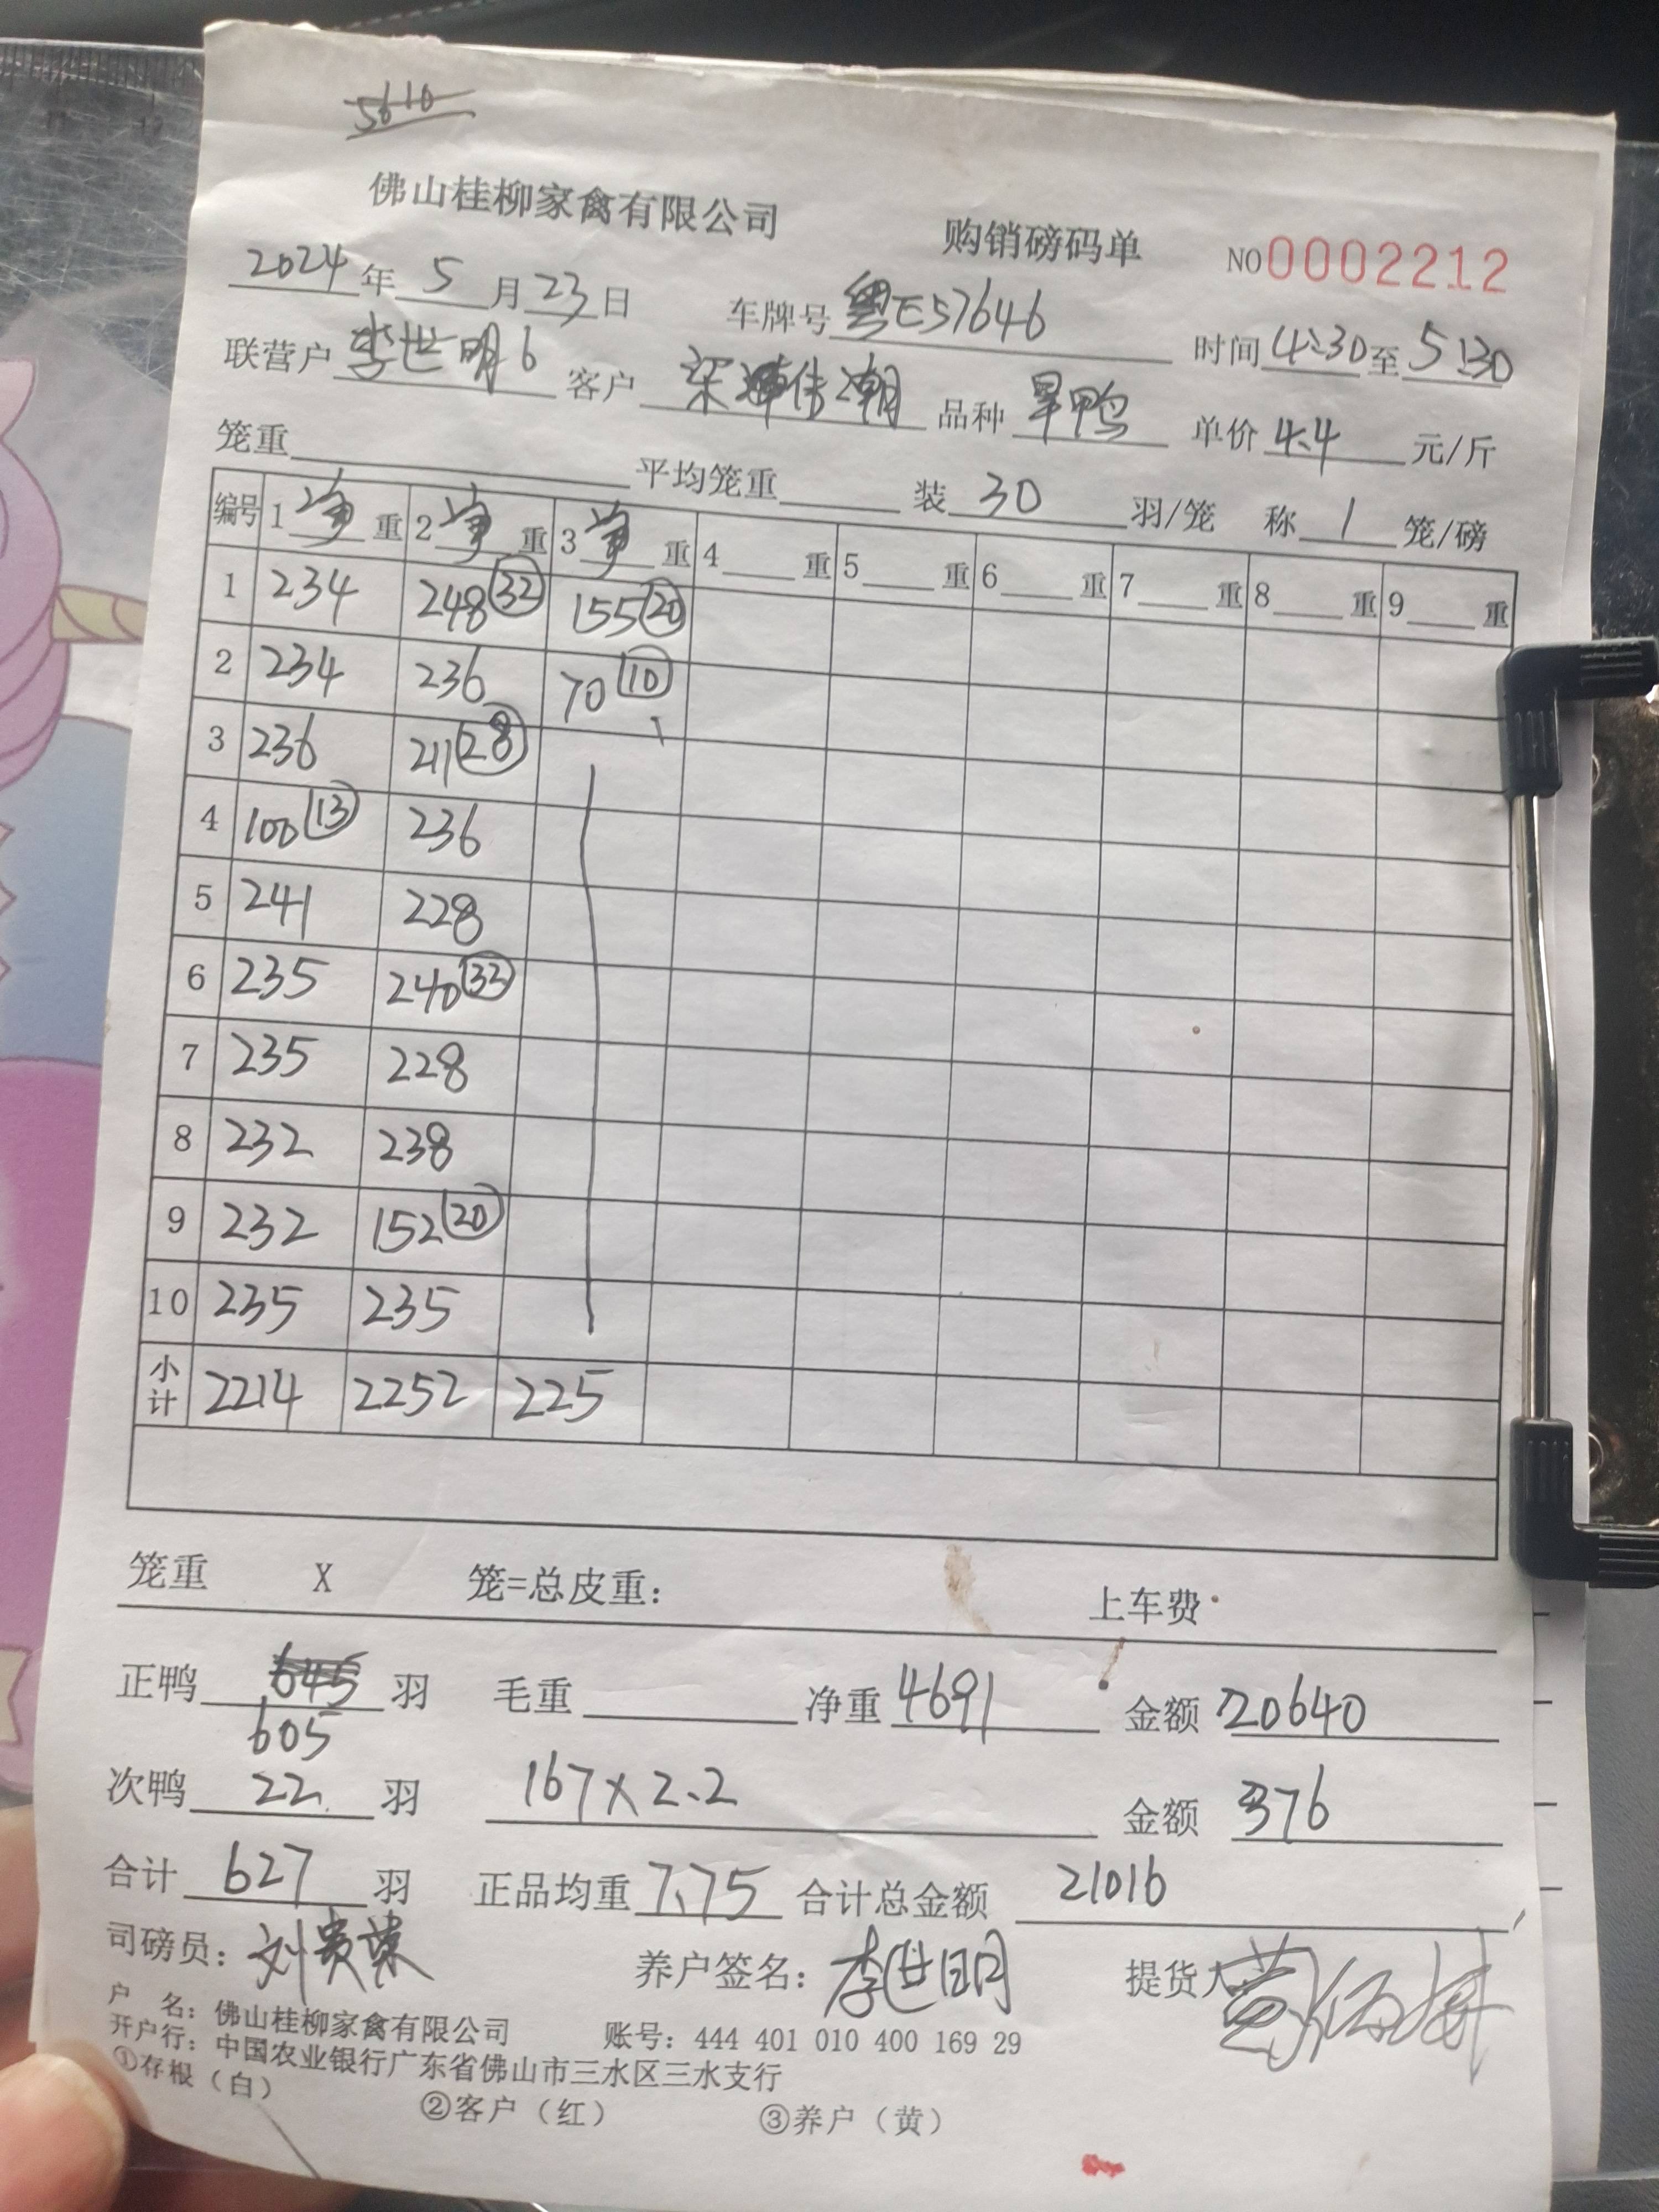 5610
佛山桂柳家禽有限公司 购销磅码单 NO 0002212
2024年5月23日 车牌号粤E57646 时间4:30至5:30
联营户李世明6 客户 品种旱鸭 单价4.4元/斤
笼重 平均笼重 装30羽/笼 称1笼/磅
编号 1净重 2净重 3净重 4重 5重 6重 7重 8重 9重
1 234 248(32) 155(20)
2 234 236 70(10)
3 236 211(28)
4 100(13) 236
5 241 228
6 235 240(32)
7 235 228
8 232 238
9 232 152(20)
10 235 235
小计 2214 2252 225
笼重 X 笼=总皮重: 上车费
正鸭 645 羽 毛重 净重4691 金额20640
605
次鸭 22 羽 167×2.2 金额 376
合计 627 羽 正品均重7.75 合计总金额 21016
司磅员:刘贵 养户签名:李世明 提货人
户 名:佛山桂柳家禽有限公司 账号:444 401 010 400 169 29
开户行:中国农业银行广东省佛山市三水区三水支行
①存根(白) ②客户(红) ③养户(黄)